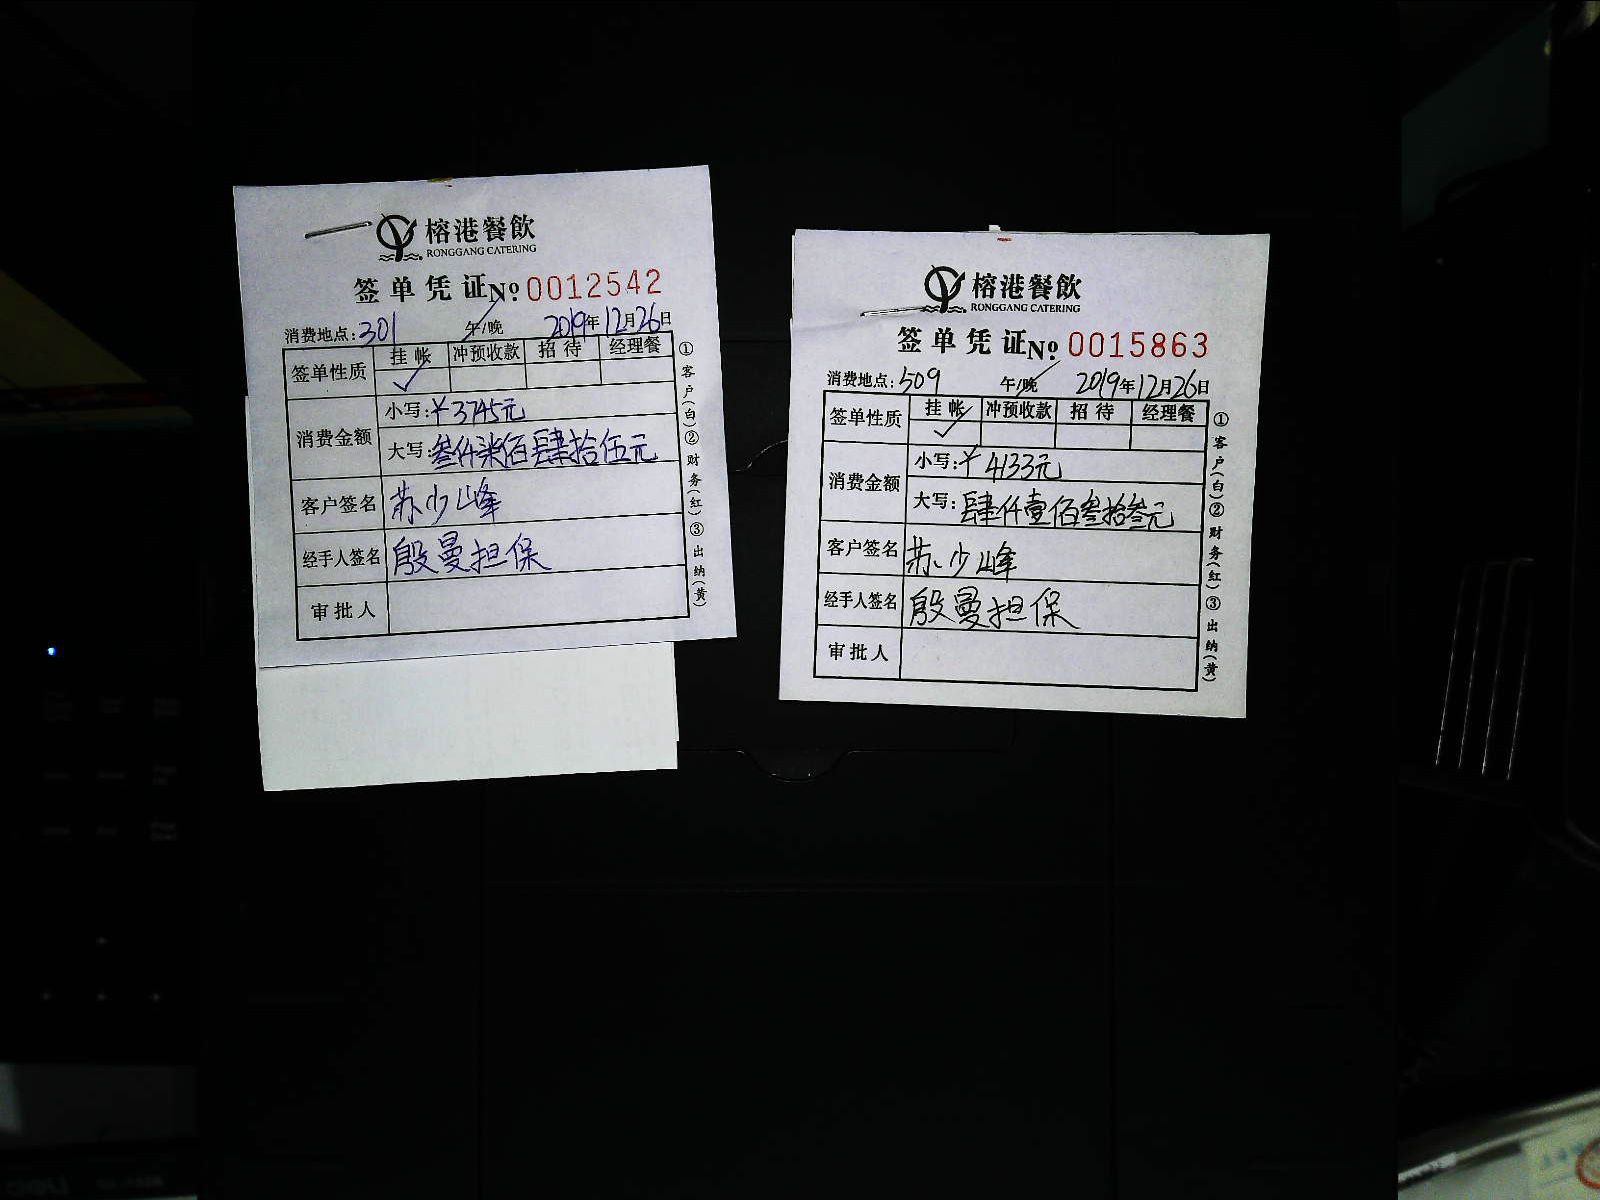 榕港餐飲
RONGGANG CATERING
签单凭证No 0012542
消费地点:301 午/晚 2019年12月26日
签单性质 挂帐 冲预收款 招待 经理餐
✓
消费金额
小写:¥3745元
大写:叁仟柒佰肆拾伍元
客户签名 苏少峰
经手人签名 殷曼担保
审批人
①客户(白)②财务(红)③出纳(黄)
榕港餐飲
RONGGANG CATERING
签单凭证No 0015863
消费地点:509 午/晚 2019年12月26日
签单性质 挂帐 冲预收款 招待 经理餐
✓
消费金额
小写:¥4133元
大写:肆仟壹佰叁拾叁元
客户签名 苏少峰
经手人签名 殷曼担保
审批人
①客户(白)②财务(红)③出纳(黄)